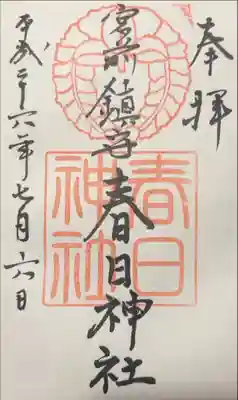 奉拝
宮前鎮守春日神社
春日
神社
平成二十六年七月六日